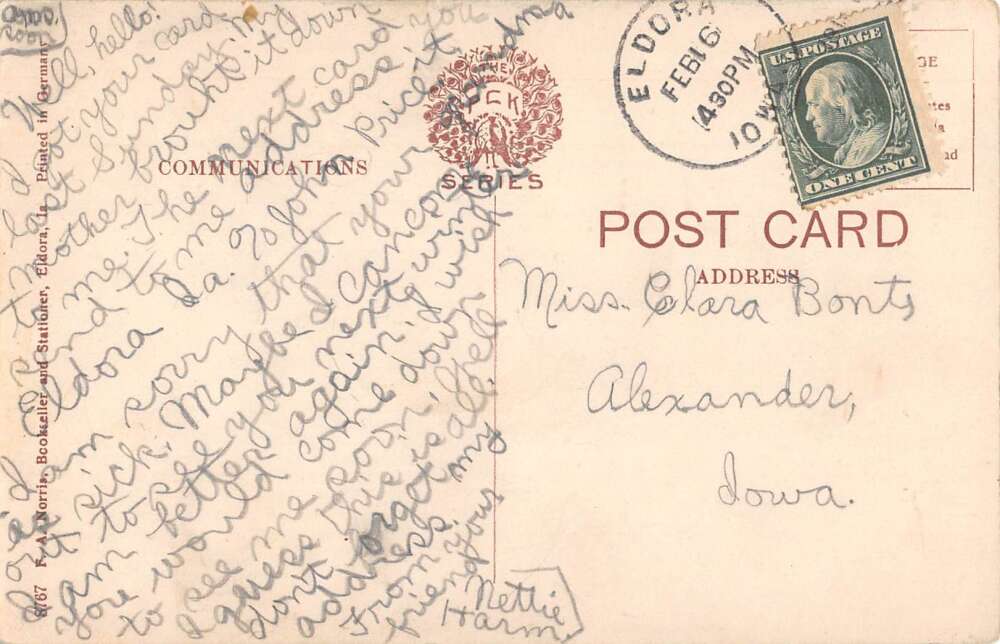 Well, hello!
I got your card
last Sunday my
mother brought it down
to me. The next card you
send to me address it
Eldora Ia. c/o John Price
I am sorry that your Grandma
is sick. Maybe I can come
to see you next winter
better again. I wish
you would come down
to see me soon.
I guess this is all
Don't forgot my
address
From your
friend
Nettie
Harm.
8767 F. A. Norris, Bookseller and Stationer, Eldora, Ia. Printed in Germany
COMMUNICATIONS
THE
SERIES
ELDORA
FEB 16
430PM
IOWA
U.S. POSTAGE
ONE CENT
POST CARD
ADDRESS
Miss. Clara Bonts
Alexander,
Iowa.